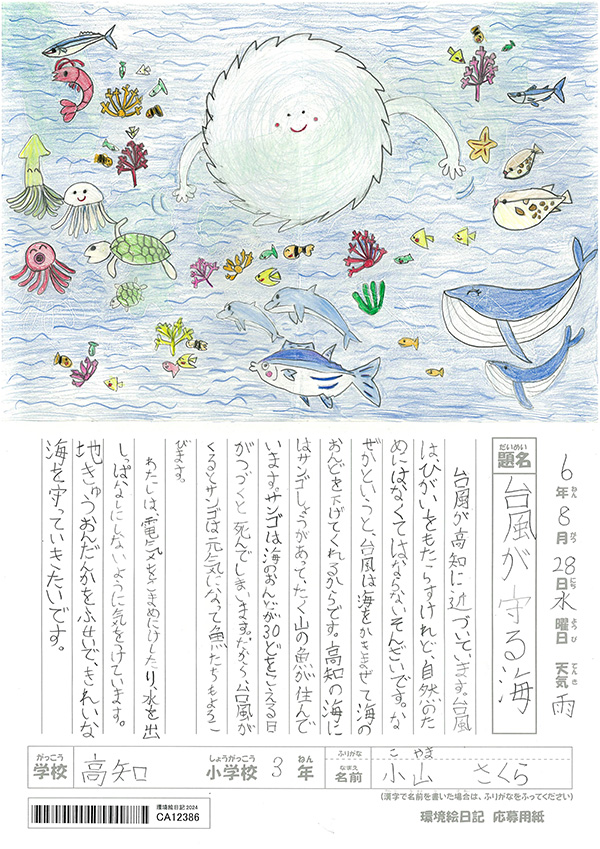 6年8月28日水曜日 天気雨
ねん がつ にち ようび てんき
だいめい
題名 台風が守る海
台風が高知に近づいています。台風
は、ひがいをもたらすけれど、自然のた
めにはなくてはならないそんざいです。な
ぜかというと、台風は海をかきまぜて海の
おんどを下げてくれるからです。高知の海に
はサンゴしょうがあって、たく山の魚が住んで
います。サンゴは海のおんどが30どをこえる日
がつづくと死んでしまいます。だから台風が
くるとサンゴは元気になって魚たちもよろこ
びます。
わたしは、電気をこまめにけしたり、水を出
しっぱなしにしないように気をつけています。
地きゅうおんだんかをふせいで、きれいな
海を守っていきたいです。
がっこう しょうがっこう ねん ふりがな こやま
学校 高知 小学校 3年 なまえ 名前 小山 さくら
(漢字で名前を書いた場合は、ふりがなをふってください)
環境絵日記 応募用紙
環境絵日記 2024
CA12386